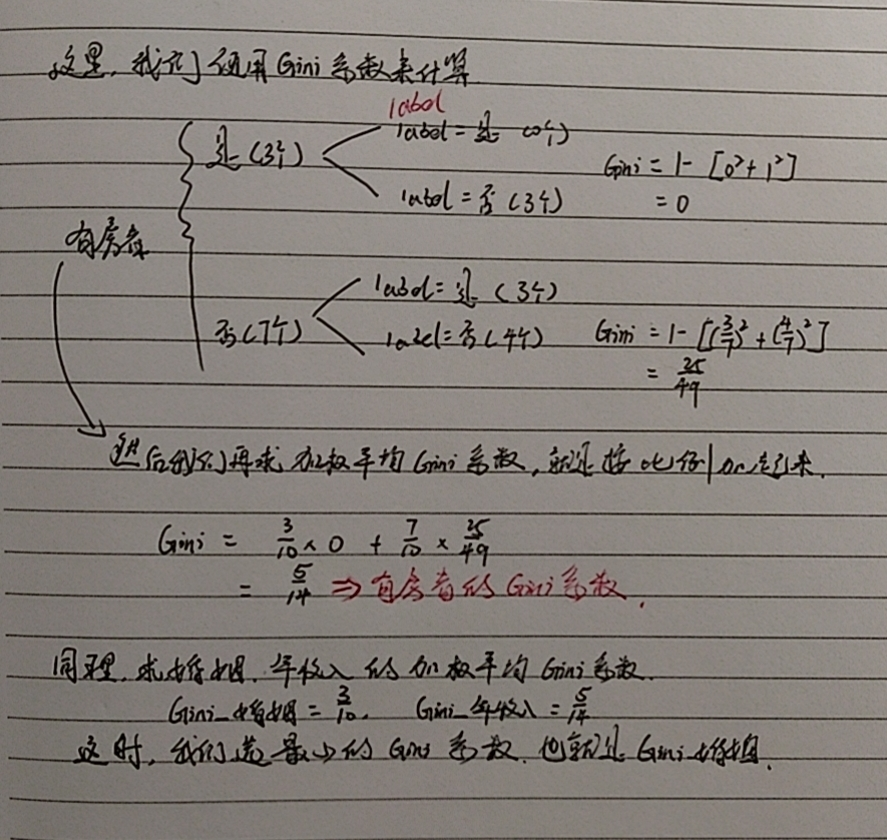 这里,我们使用Gini系数来计算
label
是(3个) label = 是 (0个)
Gini = 1 - [0² + 1²]
label = 否 (3个) = 0
有房者
label = 是 (3个)
否(7个) label = 否 (4个) Gini = 1 - [(3/7)² + (4/7)²]
= 25/49
然后我们再求加权平均Gini系数,就是按比例加起来.
Gini = 3/10 × 0 + 7/10 × 25/49
= 5/14 ⇒ 有房者的Gini系数.
同理,求婚姻,年收入的加权平均Gini系数.
Gini_婚姻 = 3/10, Gini_年收入 = 5/14
这时,我们选最小的Gini系数,也就是Gini_婚姻.